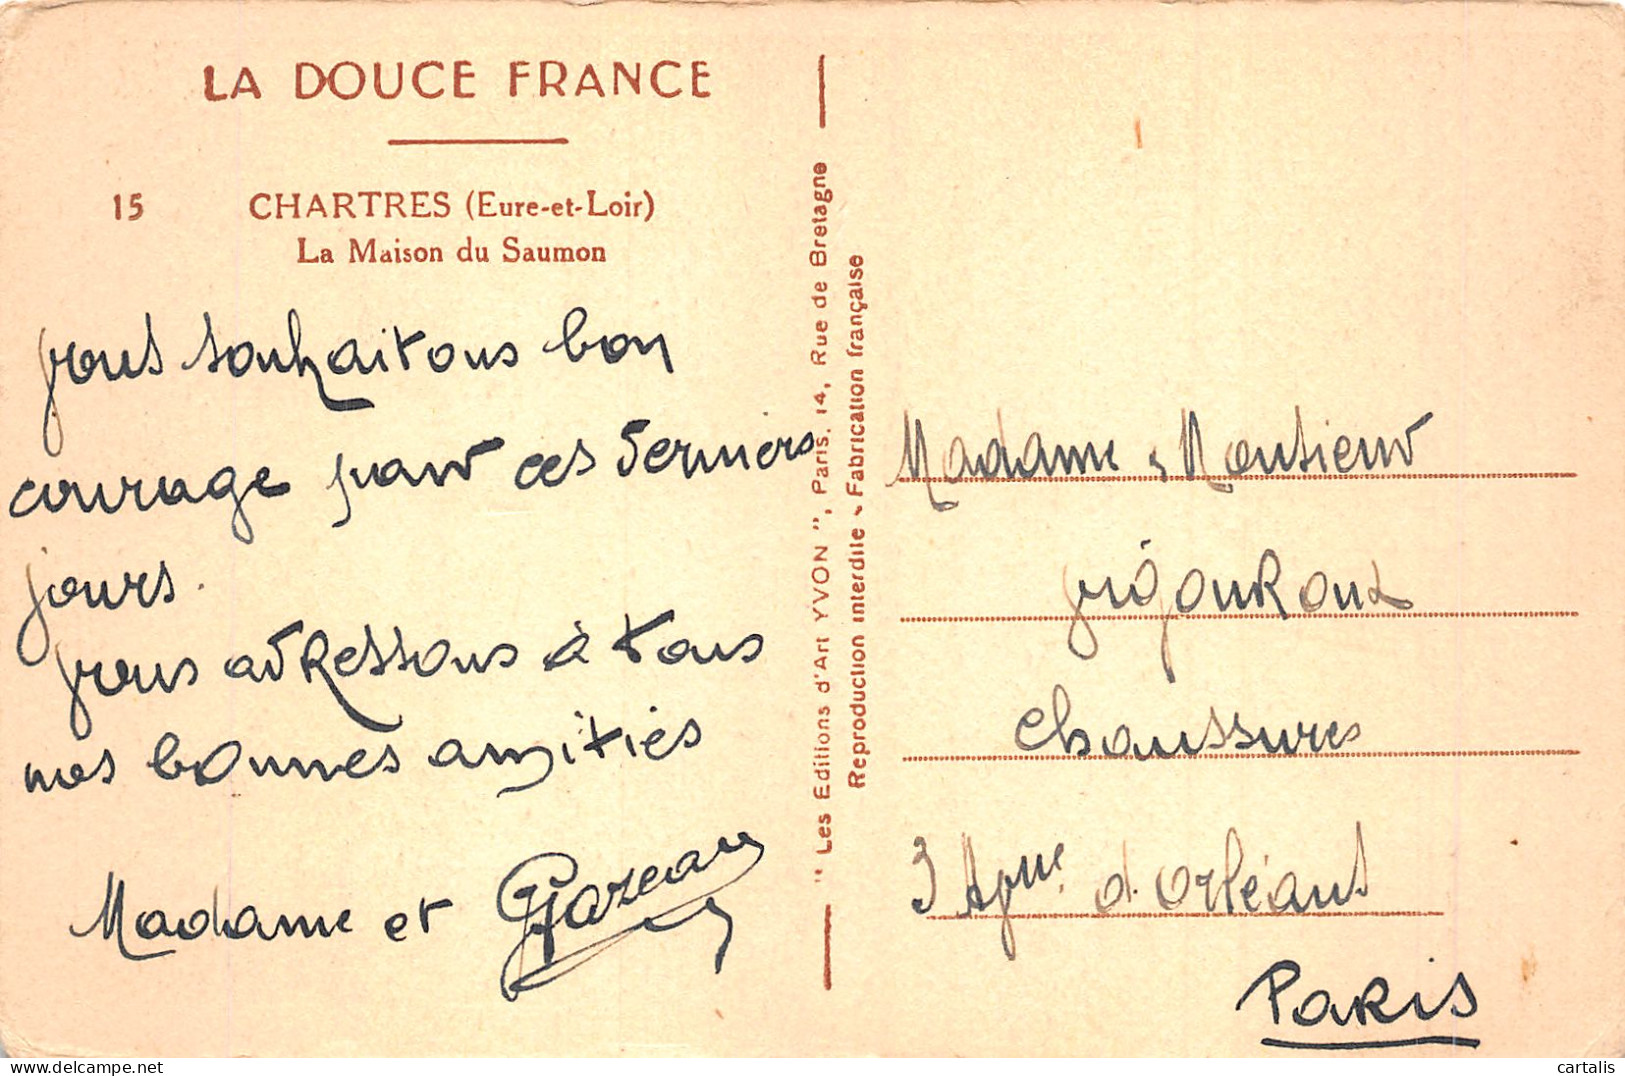 LA DOUCE FRANCE
15 CHARTRES (Eure-et-Loir)
La Maison du Saumon
vous souhaitons bon
courage pour ces derniers
jours.
vous adressons à tous
nos bonnes amitiés
Madame et
" Les Editions d'Art YVON ", Paris. 14, Rue de Bretagne
Reproduction interdite - Fabrication française
Madame & Monsieur
Vigouroux
Chaussures
3 d'Orléans
PARIS
cartalis